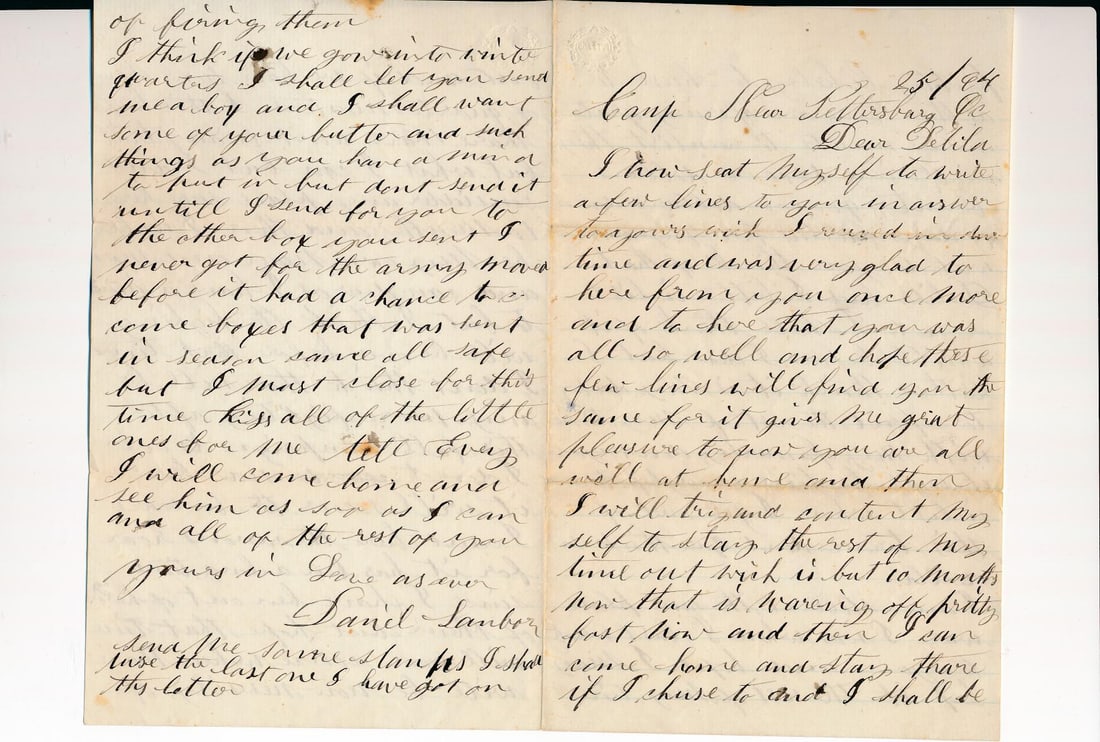 25/64
Camp Near Pettersburg
Dear Delila
I now seat myself to write
a few lines to you in answer
to yours wich I reived in due
time and was very glad to
here from you once more
and to here that you was
all so well and hope these
few lines will find you the
same for it gives me grat
pleasure to now you are all
well at home and then
I will try and content my
self to stay the rest of my
time out wich is but 10 months
now that is waring off pritty
fast now and then I can
come home and stay thare
if I chuse to and I shall be
of firing them
I think if we gow into winte
quarters I shall let you send
me a box and I shall want
some of your butter and such
things as you have a mind
to put in but dont send it
untill I send for you to
the other box you sent I
never got for the army moved
before it had a chance to
come boxes that was sent
in season came all safe
but I must close for this
time kiss all of the little
ones for me tell Every
I will come home and
see him as soo as I can
and all of the rest of you
yours in Love as ever
Daniel Sanborn
send me some stamps I shall
use the last one I have got on
ths letter